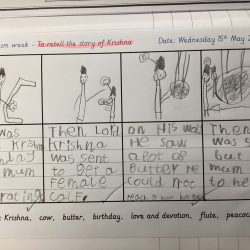 ism week - To retell the story of Krishna
Date: Wednesday 15th May 2
was
Krishn
hday
mum
rating
Then Lord
Krishna
was sent
to get a
Female
calf.
on His way
He saw
a lot of
butter He
could not
reach it but he got
Then
was
but
mum
to he
Krishna, cow, butter, birthday, love and devotion, flute, peacoc